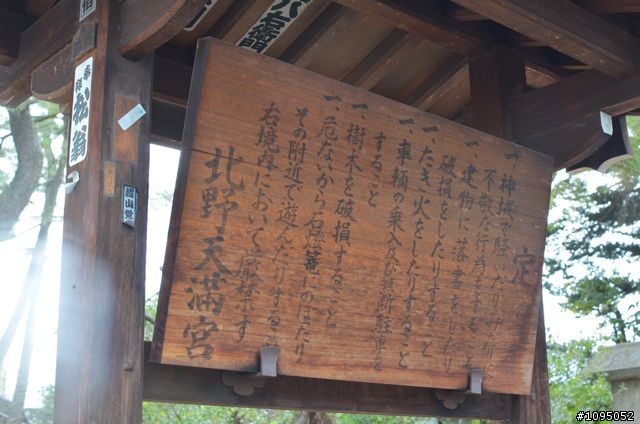 定
一、神域で騒いだり
不敬な行為をすること
一、建物に落書をしたり
破損をしたりすること
一、たき火をしたりすること
一、車輌の乗入及び無断駐車を
すること
一、樹木を破損すること
一、危ないから石燈籠にのぼたり
その附近で遊んだりすること
右境内において厳禁です
北野天満宮
松翁
#1095052